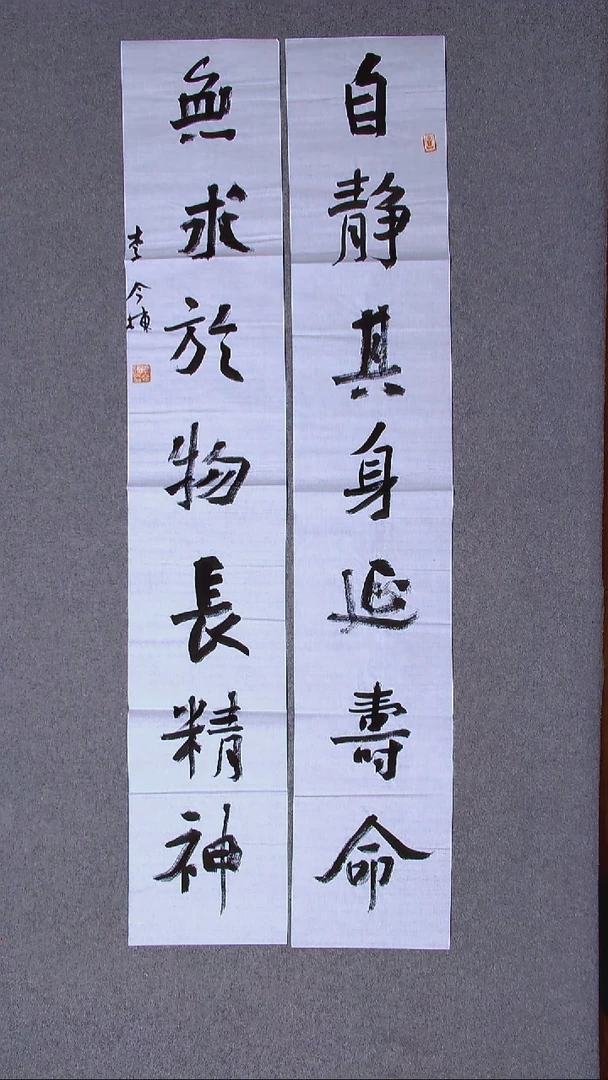 自靜其身延壽命
無求於物長精神
李今棟